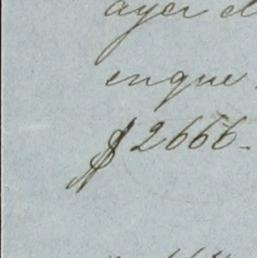 ayer el
en que
$2666.